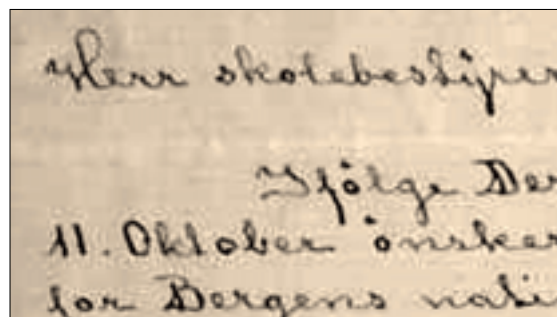 Herr skolebestyrer
Ifölge Der
11. Oktober önsker
for Bergens nati